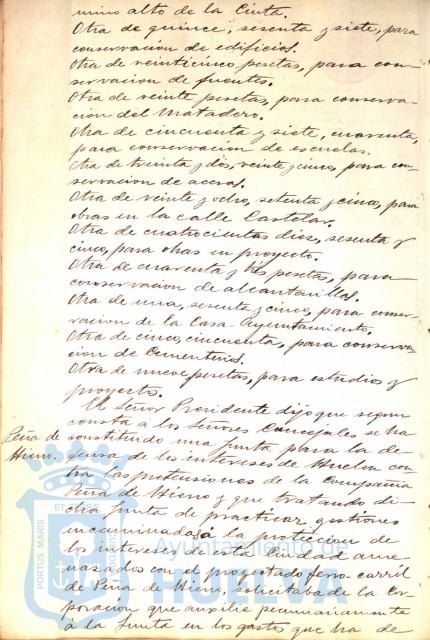 mino alto de la Cinta.
Otra de quince, sesenta y siete, para
conservacion de edificios.
Otra de veinticinco pesetas, para con-
servacion de fuentes.
Otra de veinte pesetas, para conserva-
cion del Matadero.
Otra de cincuenta y siete, cuarenta,
para conservacion de escuelas.
Otra de treinta y dos, veinte y cinco, para con-
servacion de aceras.
Otra de veinte y ocho, setenta y cinco, para
obras en la calle Castelar.
Otra de cuatrocientas diez, sesenta y
cinco, para obras en proyecto.
Otra de cuarenta y tres pesetas, para
conservacion de alcantarillas.
Otra de una, sesenta y cinco, para conser-
vacion de la Casa-Ayuntamiento.
Otra de cinco, cincuenta, para conserva-
cion de Cementerios.
Otra de nueve pesetas, para estudios y
proyecto.
El Señor Presidente dijo que segun
Peña de Hierro.
consta a los Señores Concejales se ha
constituido una Junta para la de-
fensa de los intereses de Huelva con-
tra las pretensiones de la Compañia
Peña de Hierro y que tratando di-
cha Junta de practicar gestiones
encaminadas á la proteccion de
los intereses de esta Ciudad ame-
nazados con el proyectado ferro-carril
de Peña de Hierro, solicitaba de la Cor-
poracion que auxilie pecuniariamente
á la Junta en los gastos que ha de
PORTUS MARIS
Ayuntamiento de
HUELVA